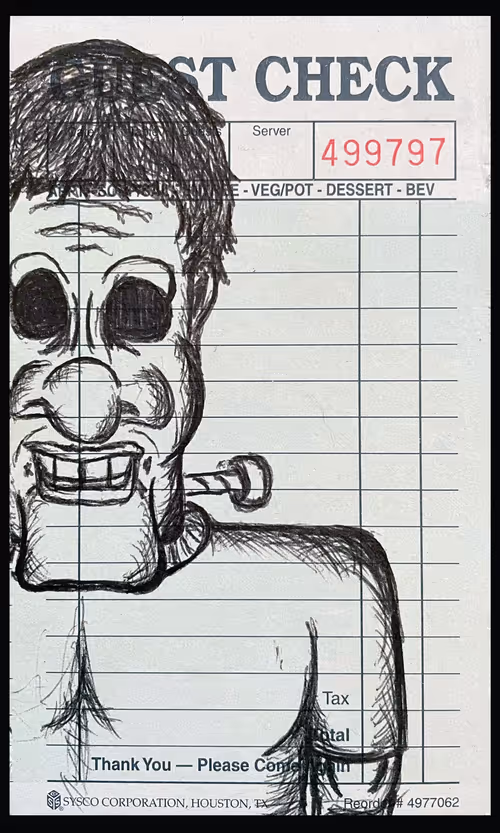 GUEST CHECK
Server
499797
- VEG/POT - DESSERT - BEV
Tax
Total
Thank You — Please Come Again
SYSCO CORPORATION, HOUSTON, TX
Reorder # 4977062